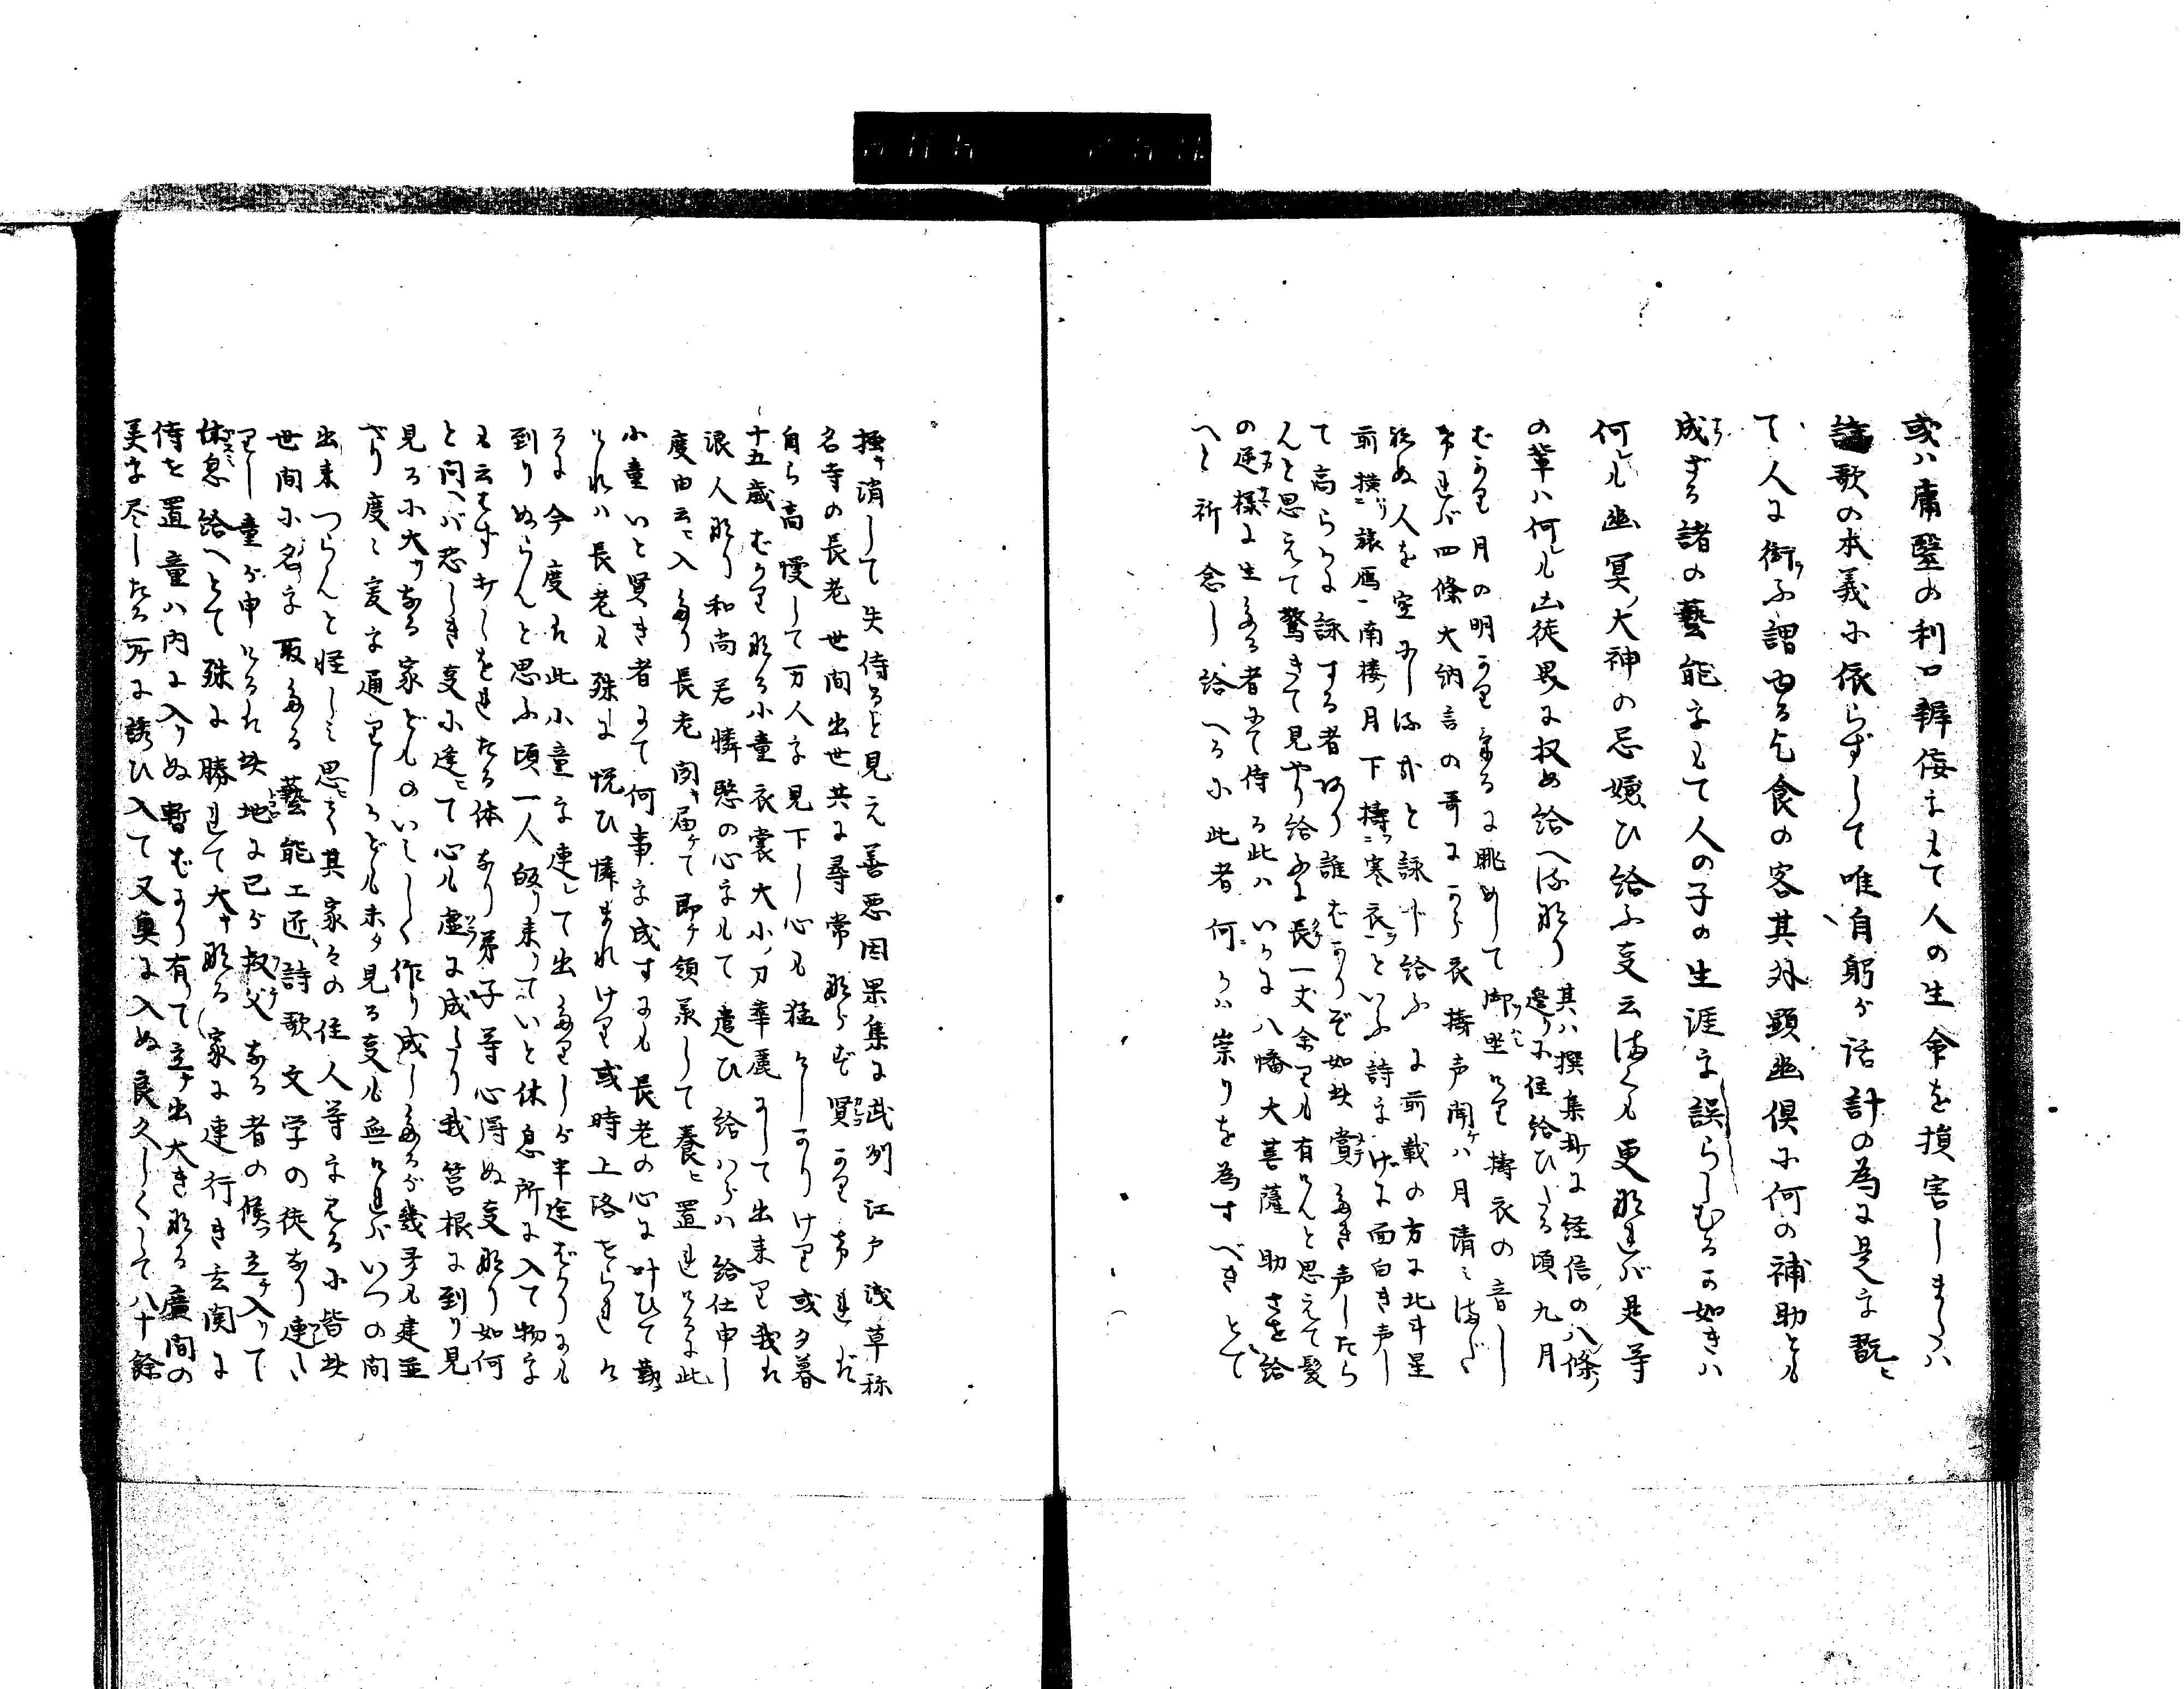 或ハ庸醫の利口辨侫をもて人の生命を損害しまたハ
歌の本義に依らずして唯自躬が活計の為に是を翫ミ
て人に衒ふ謂ゆる乞食の客其外顕幽倶に何の補助とも
成らざる諸の藝能をもて人の子の生涯を誤らしむるの如きハ
何レも幽冥大神の忌嫌ひ給ふ事云まくも更なれバ是等
の輩ハ何レも山徒界に収め給へるなり 其ハ撰集抄に経信の八條
邊りに住給ひける頃九月
ばかり月の明かりけるに眺めして御坐けり擣衣の音し
けれバ四條大納言の哥にから衣擣声聞ケハ月清ミまだ
ねぬ人を空にしる哉と詠じ給ふに前栽の方に北斗星
前横ニ旅鴈一南樓月下擣ニ寒衣一といふ詩をげに面白き声し
て高らかに詠ずる者あり誰ばかりぞ如此賞たき声したら
んと思えて驚きて見やり給ふに長一丈余りも有けんと思えて髪
の逆樣に生たる者にて侍る此ハいかに八幡大菩薩助させ給
へと祈念し給へるに此者何かハ崇りを為すべきとて
掻キ消して失侍ると見え善悪因果集に武列江戸浅草称
名寺の長老世間出世共に尋常ならず賢かりけれバ
自ら高慢して万人を見下し心も猛くしかりけり或夕暮
十五歳ばかりなる小童衣裳大小刀華麗にして出来り我ハ
浪人なり和尚若憐愍の心をもて遣ひ給ハらハ給仕申し
度由云て入たり長老聞キ届ケて即チ領承して養ニ置れけるに此
小童いと賢き者にて何事を成すにも長老の心に叶ひて勤
けれハ長老も殊に悦ひ憐まれけり或時上洛せられけ
るに今度ハ此小童を連レて出たりしが半途ばかりにも
到りぬらんと思ふ頃一人皈り来っていと休息所に入て物を
も云はずホレをれたる体なり弟子等心得ぬ事なり如何
と問へバ恐しき事に逢ニて心も虚に成たり我筥根に到り見
見るに大キなる家どものいミしく作り成したるが幾多も建並
べり度々爰を通りしかども未タ見る事も無けれバいつの間
出来つらんと怪しミ思ミて其家々の住人等を見るに皆此
世間に名を取たる藝能工匠詩歌文学の徒なり連し
りし童が申けるハ此地に己が叔父なる者の候立チ入りて
休息給へとて殊に勝れて大キなる家に連行き玄関に
侍を置童ハ内に入りぬ暫ばかり有て立チ出大きなる廣間の
美を尽したる所に誘ひ入て又奥に入ぬ良久しくして八十餘